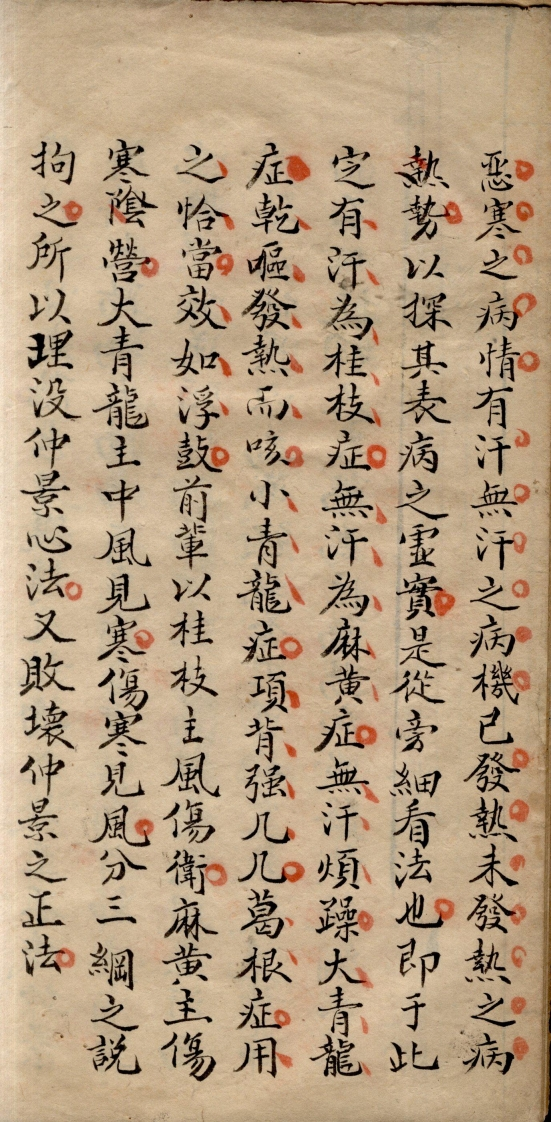 惡寒之病情有汗無汗之病機已發熱未發熱之病
熱勢以探其表病之虛實是從旁細看法也即于此
定有汗為桂枝症無汗為麻黄症無汗煩躁大青龍
症乾嘔發熱而咳小青龍症項背强几几葛根症用
之恰當效如浮鼓前輩以桂枝主風傷衛麻黄主傷
寒陰營大青龍主中風見寒傷寒見風分三綱之說
拘之所以埋没仲景心法又敗壞仲景之正法